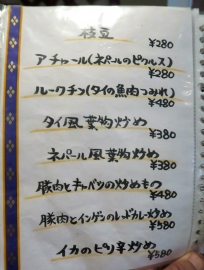 枝豆
¥280
アチャール(ネパールのピクルス)
¥280
ルークチン(タイの魚肉つみれ)
¥480
タイ風葉物炒め
¥380
ネパール風葉物炒め
¥380
豚肉とキャベツの炒めもの
¥480
豚肉とインゲンのレッドカレー炒め
¥580
イカのピリ辛炒め
¥580